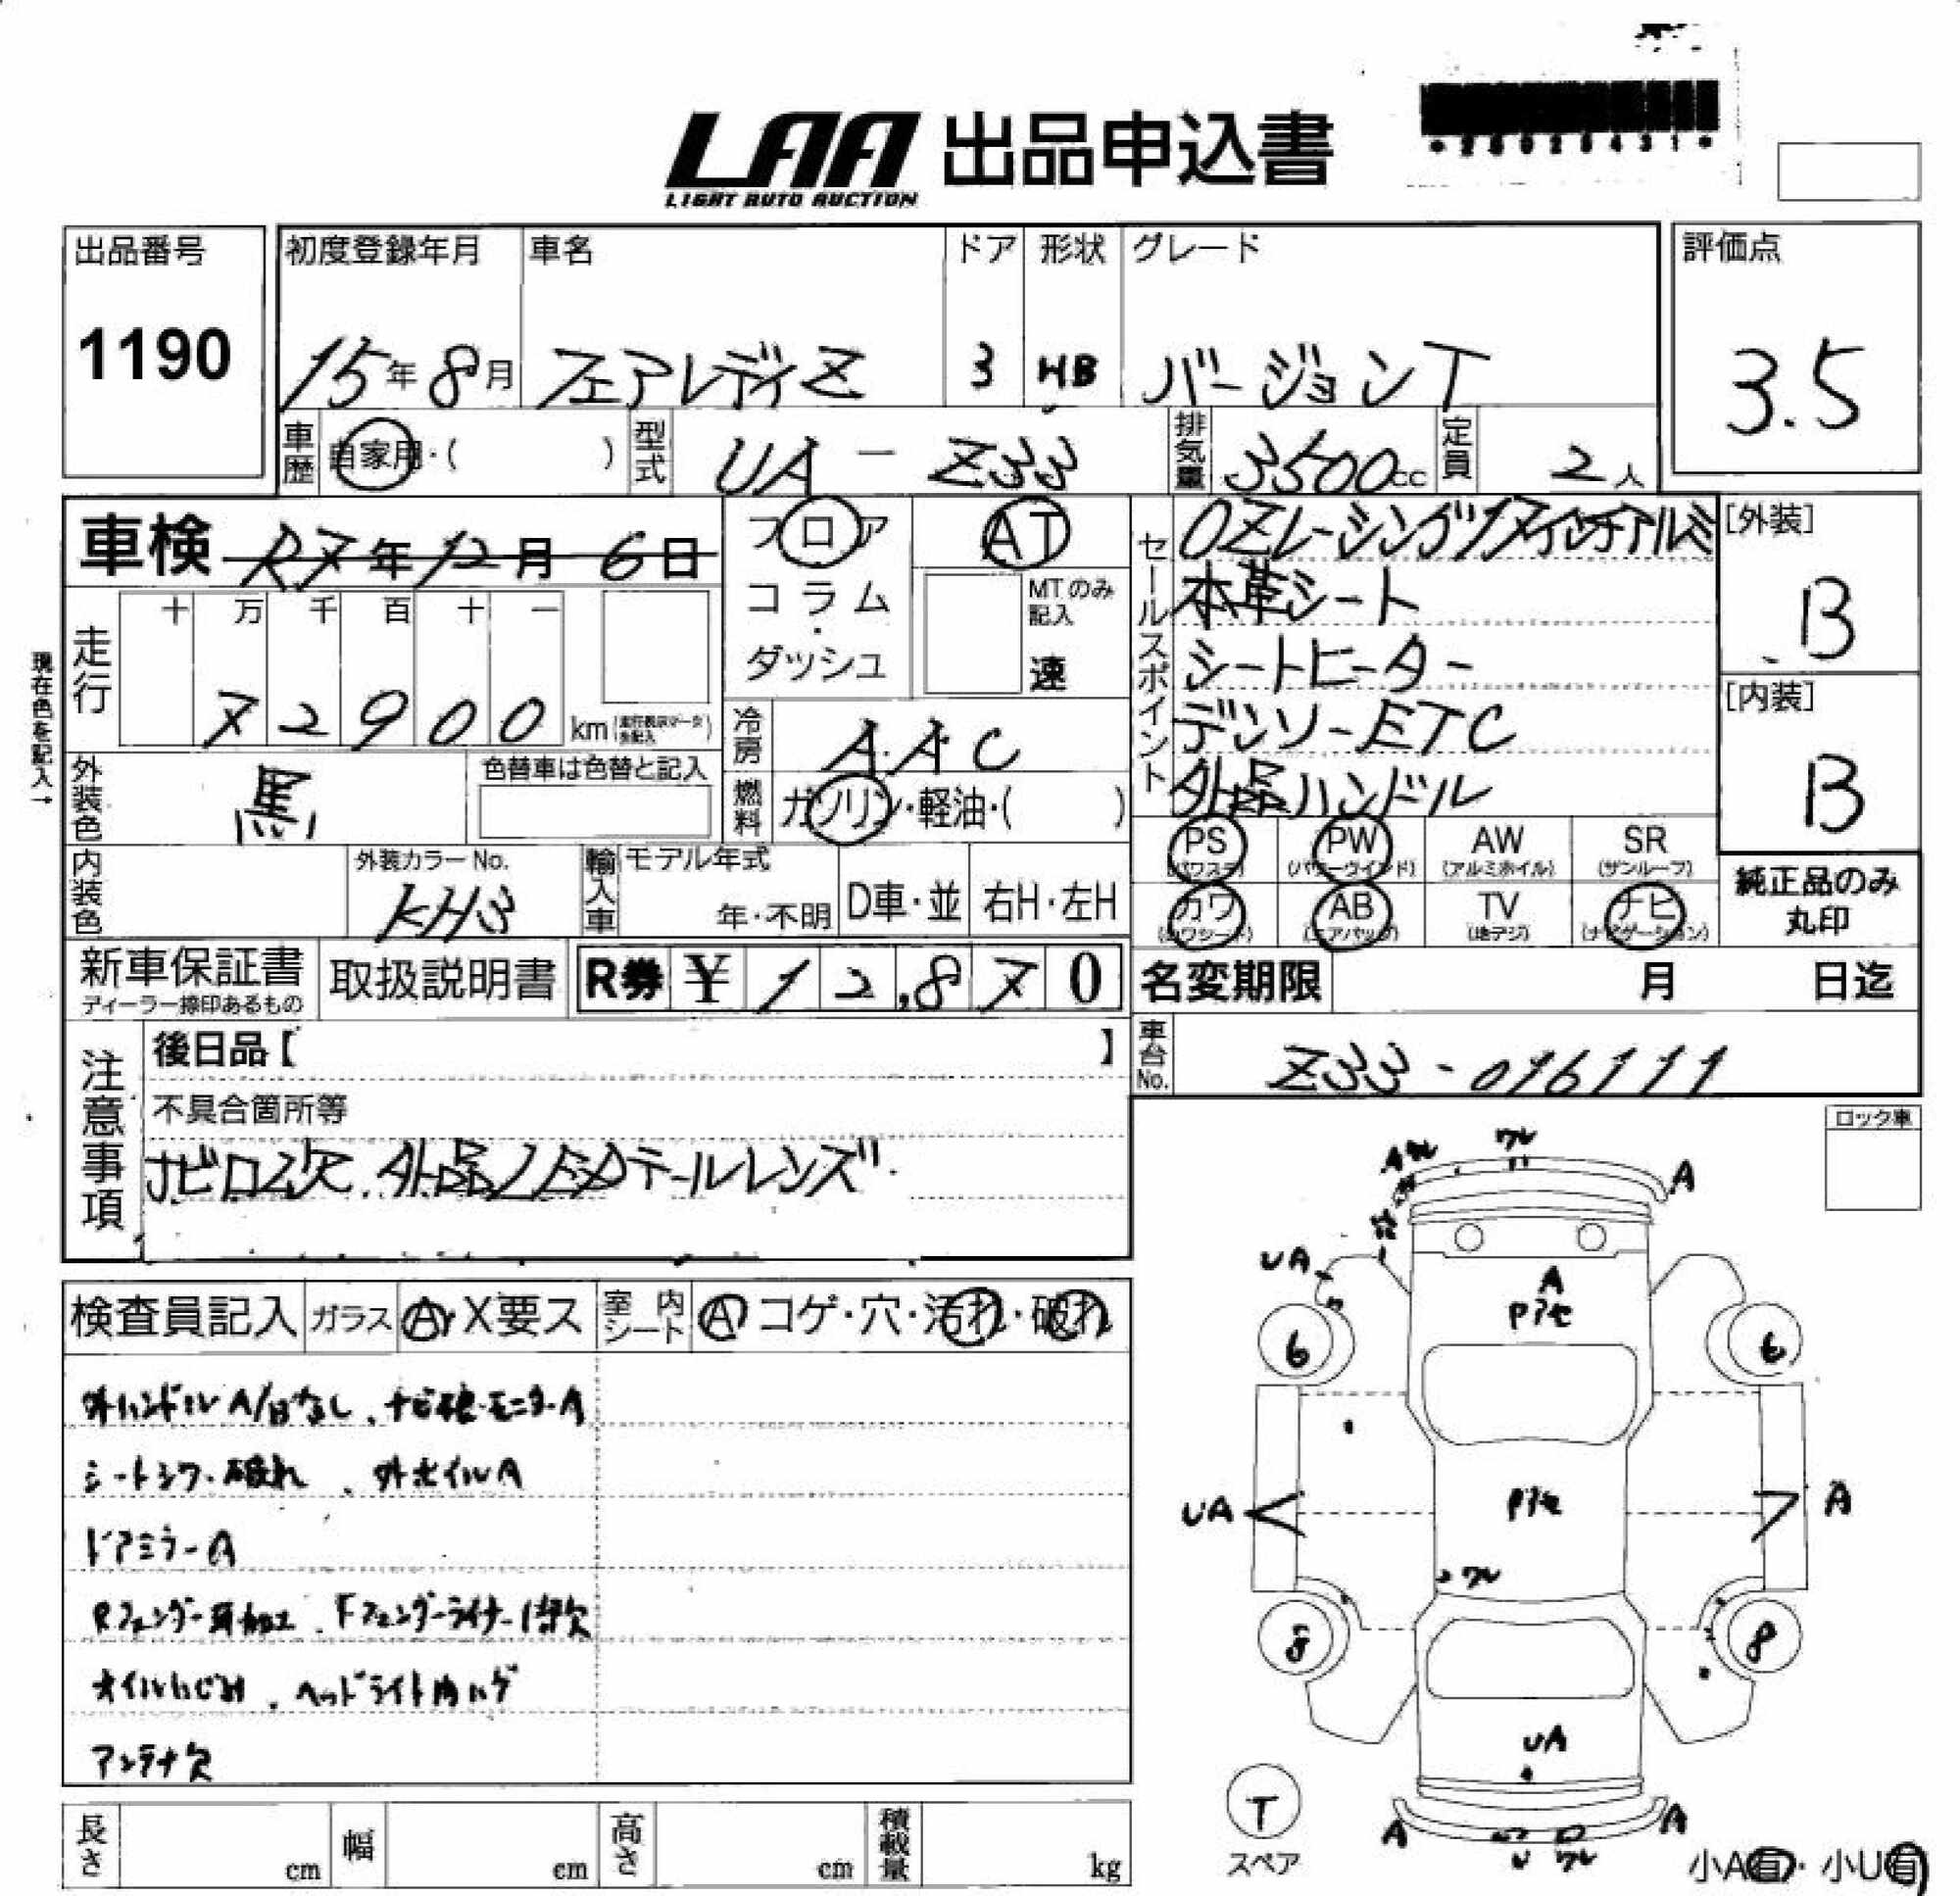 LAA 出品申込書
LIGHT AUTO AUCTION
出品番号
1190
初度登録年月
15年8月
車名
フェアレディZ
ドア
3
形状
HB
グレード
バージョンT
評価点
3.5
車歴
自家用・( )
型式
UA-Z33
排気量
3500cc
定員
2人
車検 R7年12月6日
フロア
コラム
・
ダッシュ
AT
MTのみ
記入
速
セールスポイント
OZレーシング17インチアルミ
本革シート
シートヒーター
デンソーETC
外品ハンドル
[外装]
B
[内装]
B
現在色を記入→
走行
十 万 千 百 十 一
7 2 9 0 0 km
冷房
AAC
燃料
ガソリン・軽油・( )
外装色
黒
色替車は色替と記入
内装色
外装カラーNo.
KH3
輸入車
モデル年式
年・不明
D車・並
右H・左H
PS (パワステ)
PW (パワーウインド)
AW (アルミホイル)
SR (サンルーフ)
カワ (カワシート)
AB (エアバッグ)
TV (地デジ)
ナビ (ナビゲーション)
純正品のみ
丸印
新車保証書
ディーラー捺印あるもの
取扱説明書
R券 ¥ 1 2,8 7 0
名変期限 月 日迄
車台No.
Z33-016111
注意事項
後日品【 】
不具合箇所等
ナビロム欠 外品LEDテールレンズ
ロック車
検査員記入
ガラス
A・X要ス
室内シート
A コゲ・穴・汚れ・破れ
外ハンドルA/Bなし、ナビ・モニターA
シートシワ・破れ、外ホイルA
ドアミラーA
Rフェンダー耳加工、Fフェンダーライナー1部欠
オイルにじみ、ヘッドライト内ハゲ
アンテナ欠
ワレ
A
UA
A
6
6
UA
A
ワレ
8
8
UA
A
A
ワレ
T
スペア
小A有・小U有
長さ cm
幅 cm
高さ cm
積載量 kg